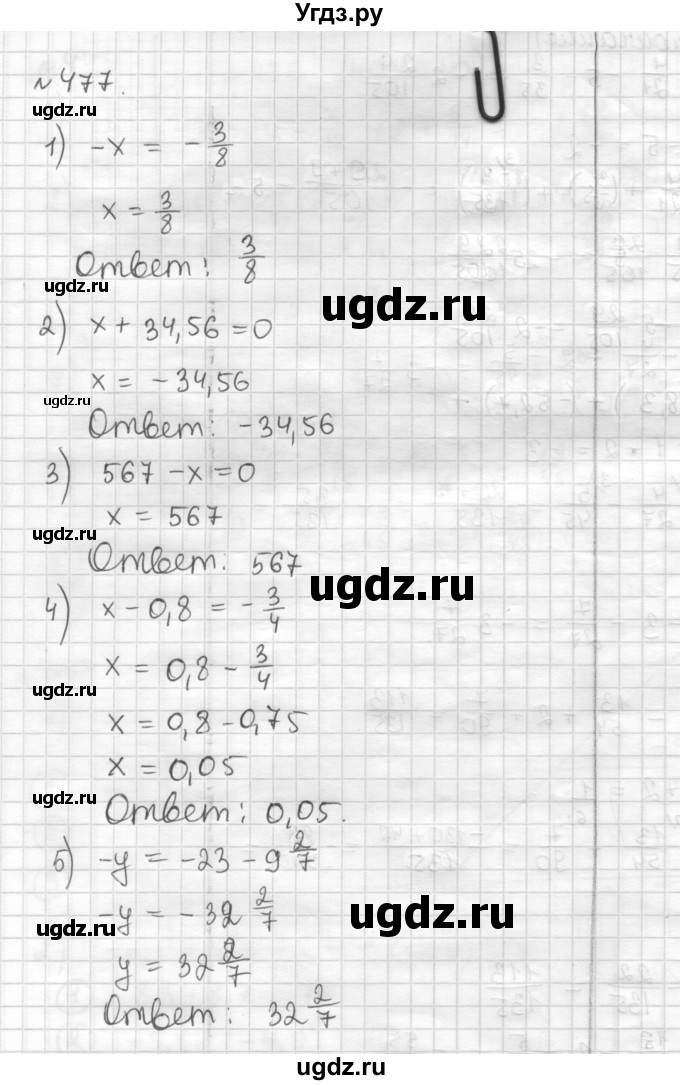 Угдз.ру
№477.
ugdz.ru
1) -x = -3/8
x = 3/8
Ответ: 3/8
ugdz.ru
ugdz.ru
2) x + 34,56 = 0
x = -34,56
ugdz.ru
Ответ: -34,56
3) 567 - x = 0
x = 567
ugdz.ru
Ответ: 567
ugdz.ru
4) x - 0,8 = -3/4
x = 0,8 - 3/4
ugdz.ru
x = 0,8 - 0,75
x = 0,05
ugdz.ru
Ответ: 0,05.
5) -y = -23 - 9 2/7
-y = -32 2/7
ugdz.ru
ugdz.ru
y = 32 2/7
Ответ: 32 2/7
ugdz.ru